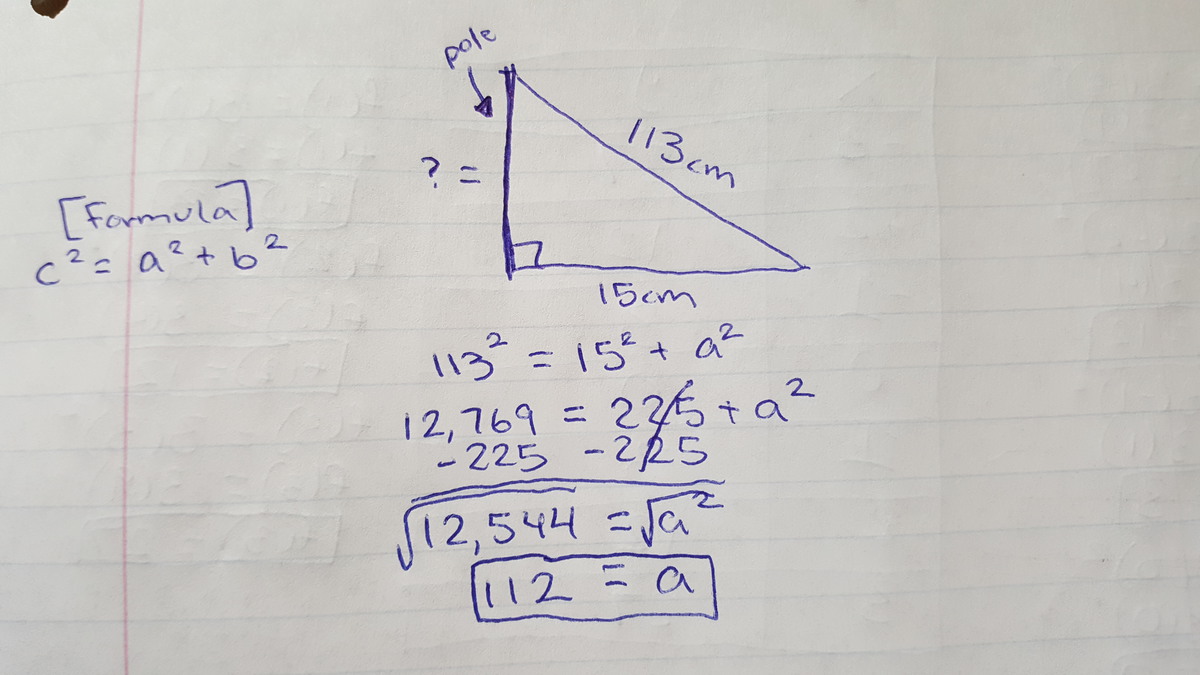 pole
113cm
? =
[Formula]
c² = a² + b²
15cm
113² = 15² + a²
12,769 = 225 + a²
-225 -225
√12,544 = √a²
112 = a